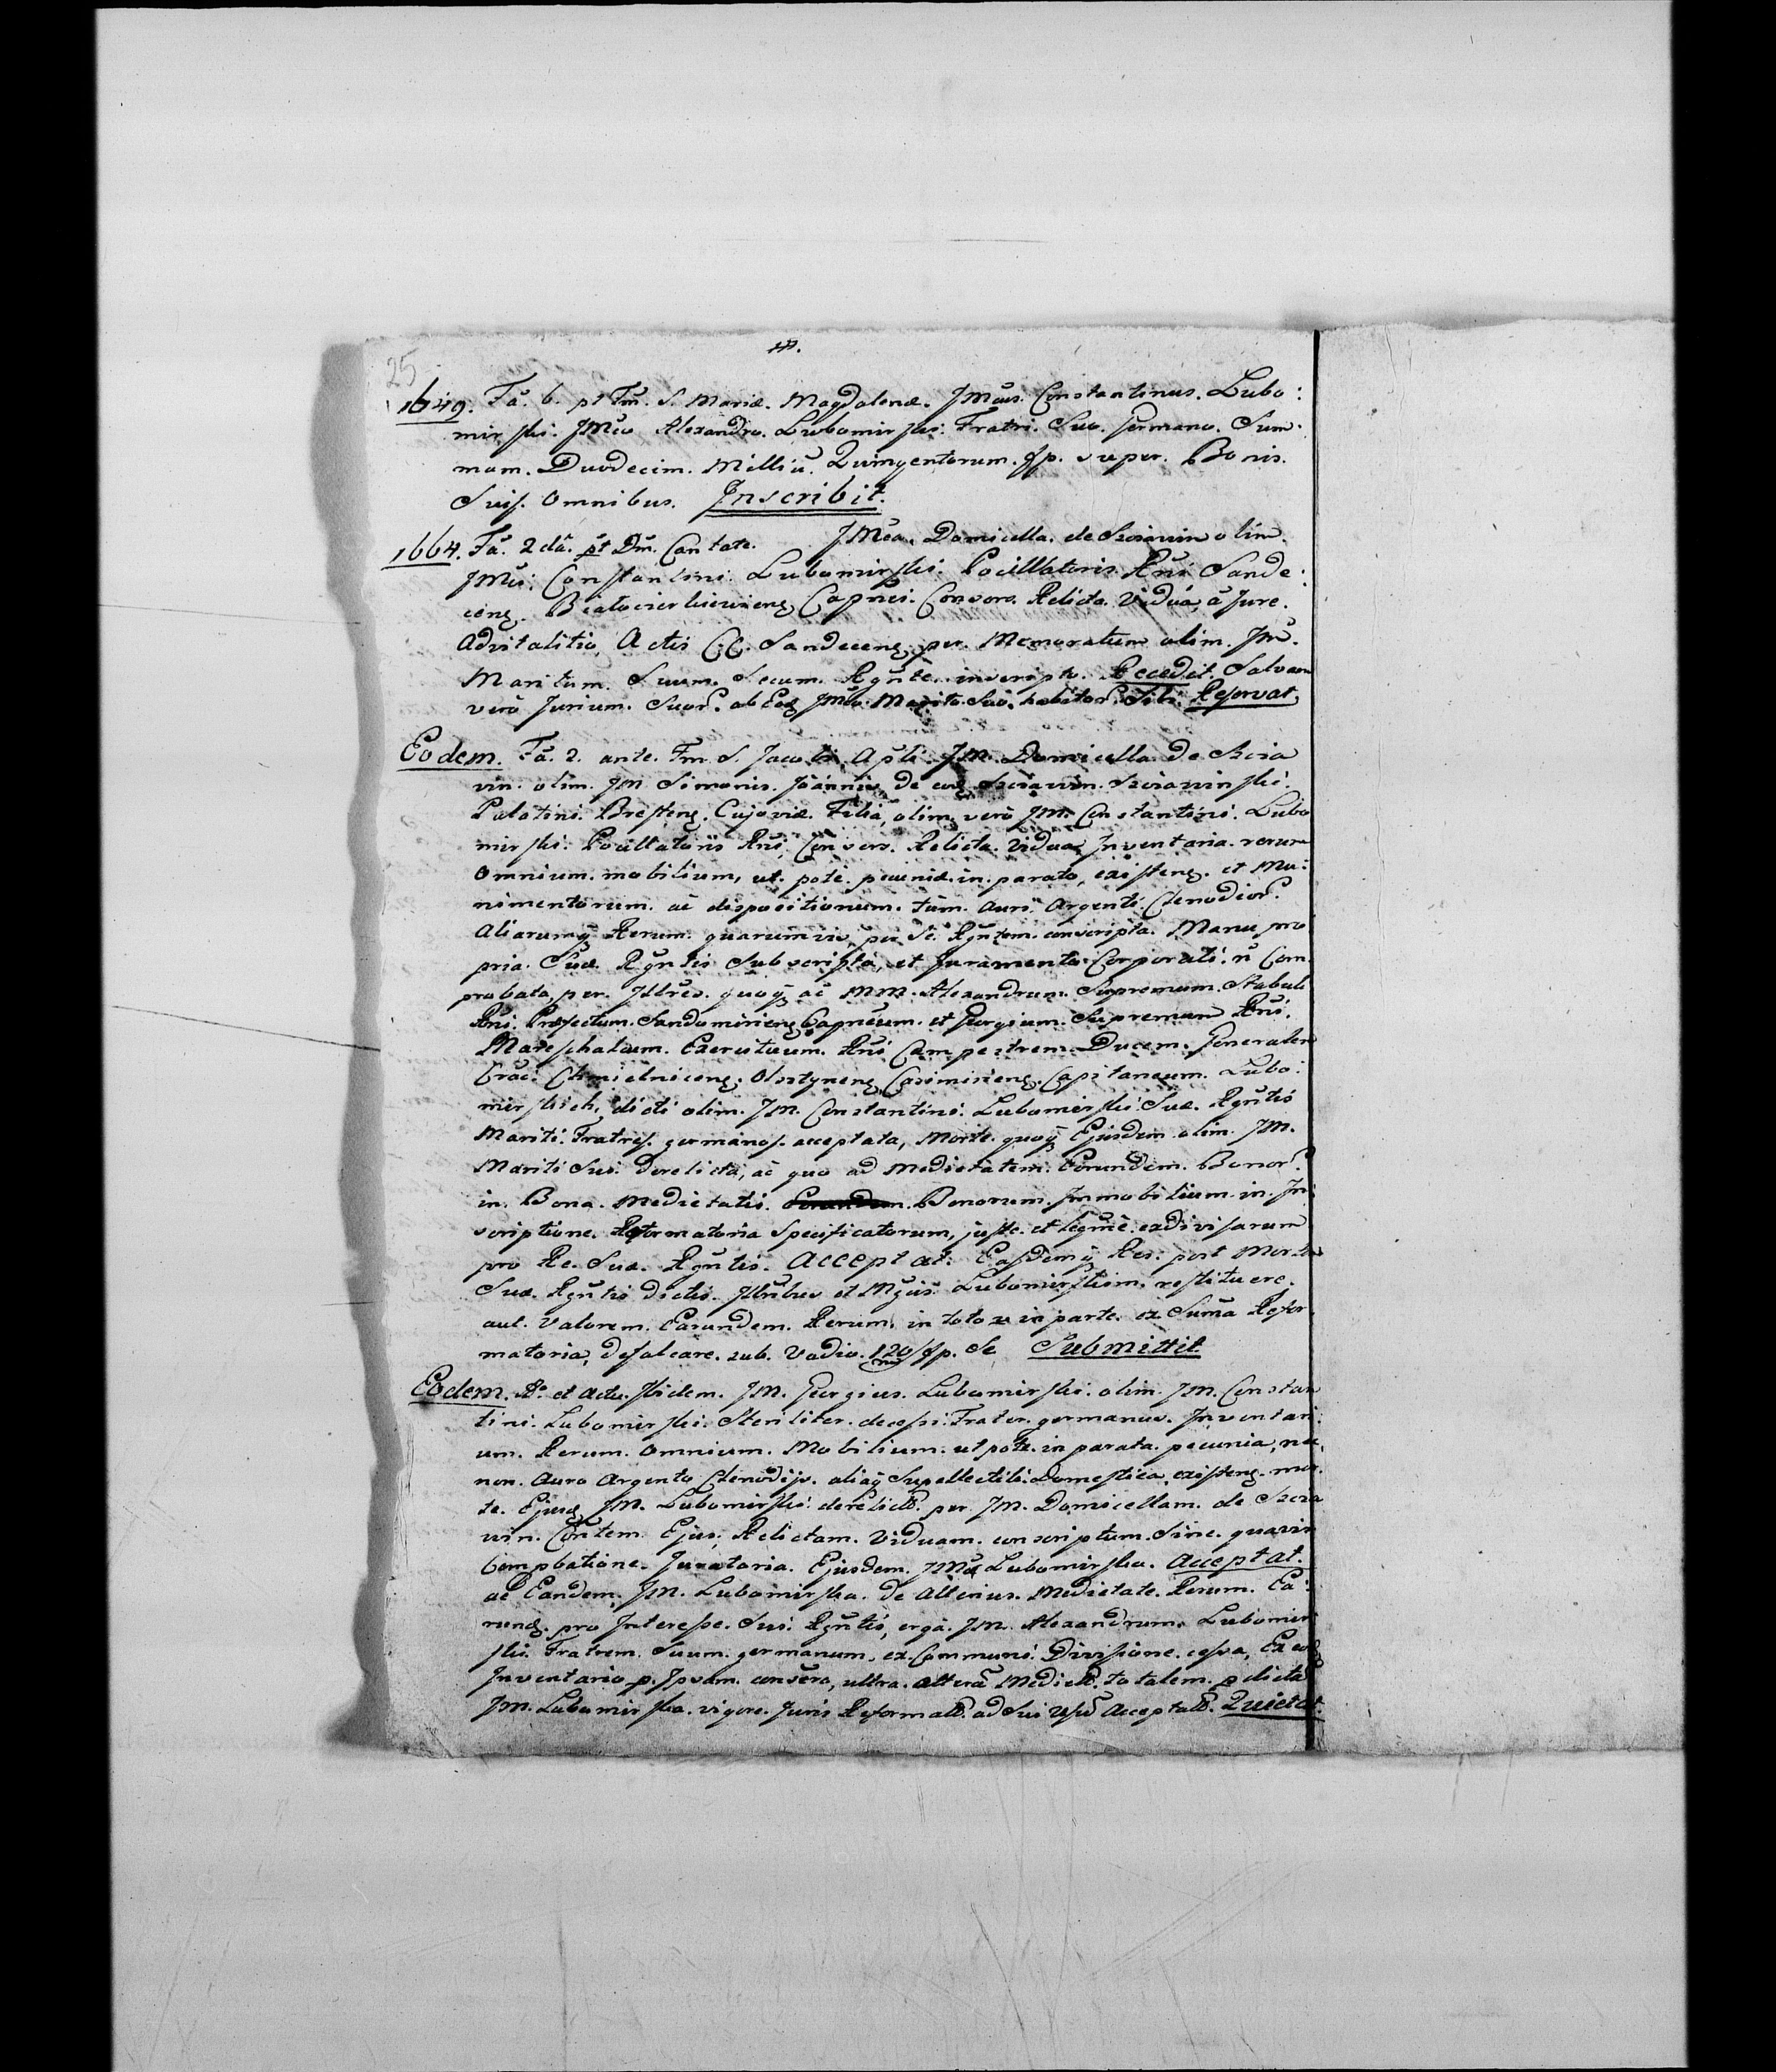 25
1649. Fã. 6. pt Fm̃. S. Mariæ. Magdalenæ. JMcus. Constantinus. Lubo:
mirski. JMco Alexandro. Lubomirski. Fratri. Suo. Germano. Sum.
mam. Duodecim. Milliũ. Quingentorum. fp. super. Bonis.
Suis. Omnibus. Inscribit.
1664. Fã. 2dã. pt Dm̃. Cantate. JMca. Domicella. de Szczawin olim.
JMci. Constantini. Lubomirski. Pocillatoris. Rñi Sande:
ceñ. Białocerkievieñ Capnei. Consors. Relicta. Vidua, à Jure.
Advitalitio, Actis CC. Sandeceñ. per. Memoratum olim. Jm̃.
Maritum. Suum. Secum. Rgnte. inscripto. Recedit. Salvam
verò Jurium. Suor. ab Eod JMco. Marito. Suo. habitor. Sibi. Reservat.
Eodem. Fã. 2. ante. Fm. S. Jacobi. Apli. JM. Domicella. De Szcza
vin. olim. JM. Simonis. Joannis, De eod Szczawin. Szczawinski.
Palatini. Bresteñ. Cujaviæ. Filia, olim, verò JM. Constantini. Lubo
mirski. Pocillatoris Rñi, Consors. Relicta. Vidua, Inventaria. rerum
Omnium. mobilium, ut. potè. pecuniæ. in. parato, existeñ. et Mu:
nimentorum. ac dispositionum. tùm. auri. Argenti. Clenodior.
Aliarumq Rerum. quarumvis, per Se. Rgntem. conscripta. Manu, pro
pria. Suæ. Rgntis Subscripta, et Juramento. Corporali. ñ Com
probata, per. Jllres. quoq ac MM. Alexandrum. Supremum. Stabuli
Rñi. Præfectum. Sandomirieñ Capneum. et Georgium. Supremum Rñi.
Mareschalcum. Exercituum. Rñi Campestrem. Ducem. Generalem
Crac. Chmielniceñ. Olsztyneñ Casimirieñ. Capitaneum. Lubo:
mirskich, dicti olim. JM. Constantini. Lubomirski. Suæ. Rgntis
Mariti. Fratres. germanos. acceptata, Morte. quoq Ejusdem olim. JM.
Mariti Sui. derelicta, ac quo ad Medietatem. Eorundem. Bonor.
in. Bona. Medietatis. Eorundem. Bonorum. Immobilium. in. In
scriptione. Reformatoria Specificatorum, juste. et legme. exdivisarum
pro Re. Sua. Rgntis. Acceptat. Easdemq Res. post Mortem
Suæ. Rgntis dictis. Jllribus et Mgcis. Lubomirskim. restituere.
aut. valorem. Earundem. Rerum, in toto v in parte. ex Suma Refor.
matoria, defalcare. sub. Vadio. 120/m fp. Se Submittit
Eodem. Ao. et actu. Ibidem. JM. Georgius. Lubomirski. olim. JM. Constan
tini. Lubomirski. Steriliter. decessi. Frater. germanus. Inventari
um. Rerum. Omnium. Mobilium. utpote. in parata. pecunia, nec
non. Auro Argento Clenodijs. aliaq Supellectili. Domestica existeñ. mor.
te. Ejusd JM. Lubomirski. derelict. per. JM. Domicellam. de Szcza
win. Contem. Ejus, Relictam. Viduam. conscriptum. Sine. quavis
Comptatione. Juratoria. Ejusdem. JMcæ Lubomirska. Acceptat.
ac Eandem. JM. Lubomirska. de Alterius. Medietate. Rerum. Ea:
rund. pro Interesse. Sui. Rgntis, ergà. JM. Alexandrum. Lubomir
ski. Fratrem. Suum. germanum. ex. Communi. Divisione. cessa, Ex eod
Inventario p. Ipsam. conscro, ultra. alterã Mediet. totalem. p dictã
JM. Lubomirska. vigore. Juris Reformat. ad Sui Usũ Acceptat. Quietat.